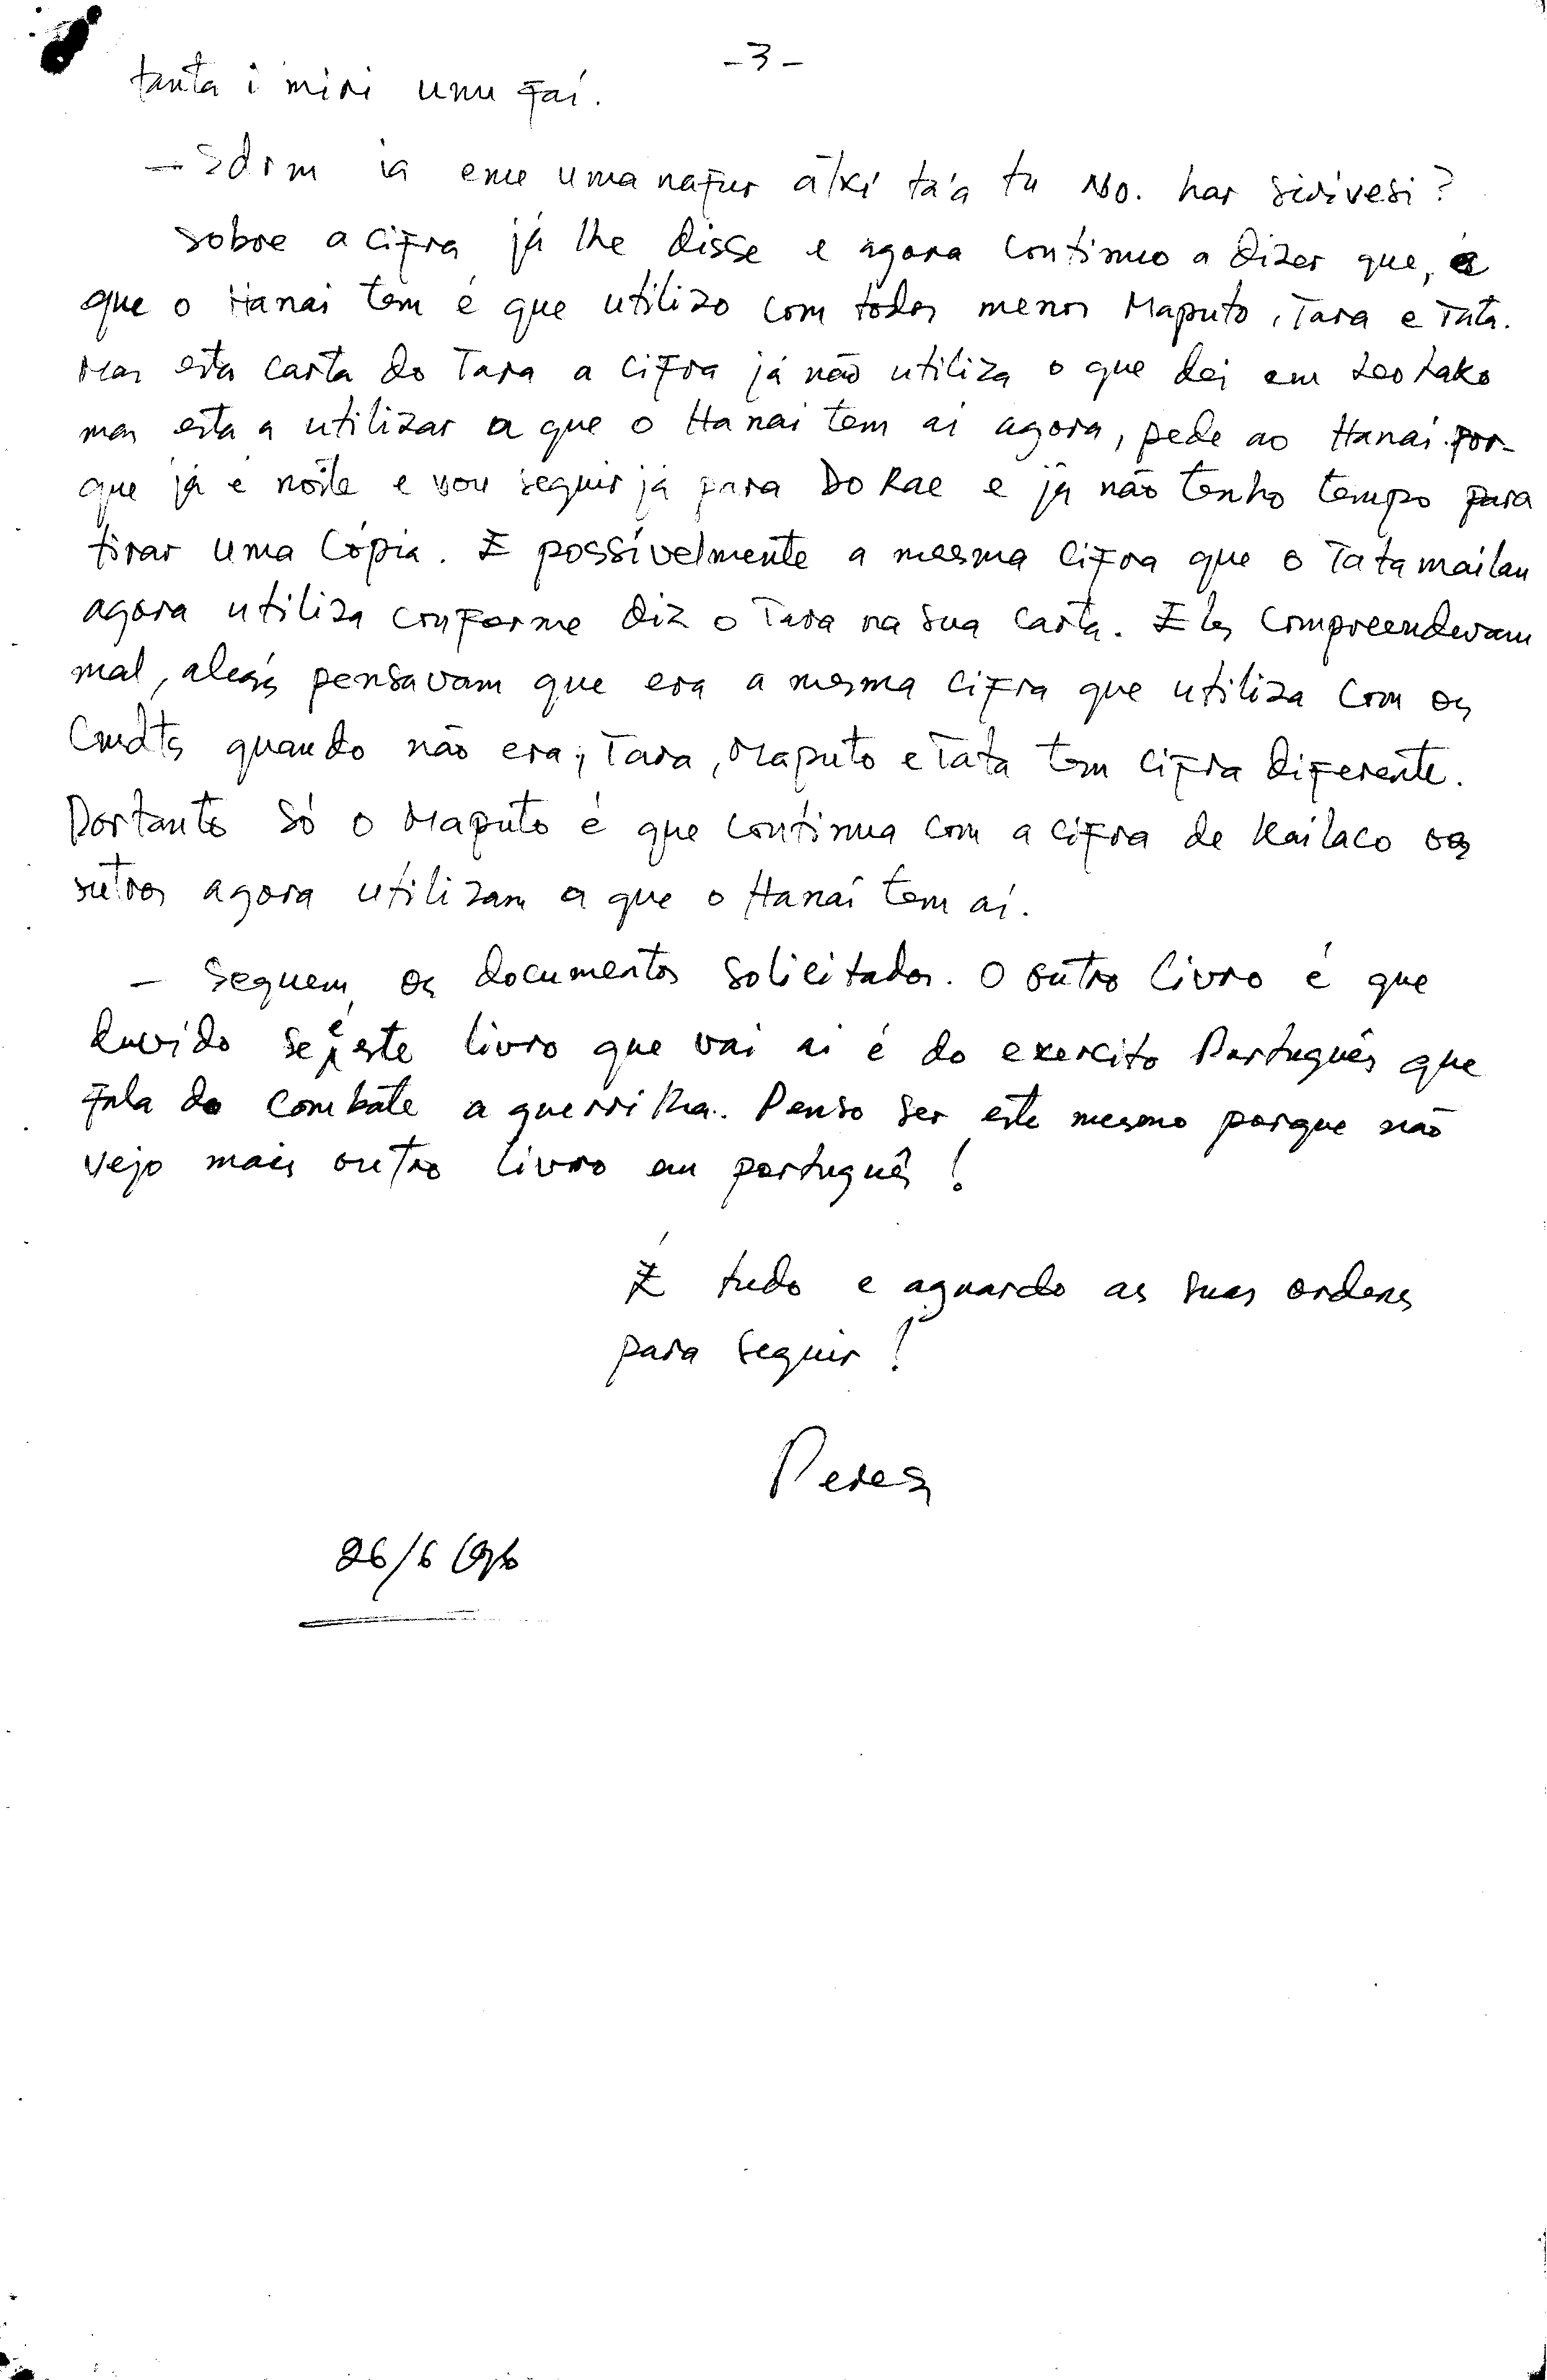 -3-
tanta i miri umu fai.
— Sdrm ia eme uma nafur álxi ta'a tu No. har sirivesi?
Sobre a cifra já lhe disse e agora continuo a dizer que, a
que o Hanai tem é que utilizo com todos menos Maputo, Tara e Tata.
Mas esta carta do Tara a cifra já não utiliza o que dei em Leotako
mas esta a utilizar a que o Hanai tem ai agora, pede ao Hanai por-
que já é noite e vou seguir já para Do Rae e já não tenho tempo para
tirar uma Cópia. E possívelmente a mesma cifra que o Tatamailau
agora utiliza conforme diz o Tara na sua carta. Eles compreenderam
mal, aleás pensavam que era a mesma cifra que utiliza com os
Cmdts quando não era; Tara, Maputo e Tata tem cifra diferente.
Portanto só o Maputo é que continua com a cifra de Kailaco os
outros agora utilizam a que o Hanai tem ai.
— Seguem os documentos solicitados. O outro livro é que
duvido se é este livro que vai ai é do exercito Português que
fala do combate a guerrilha. Penso ser este mesmo porque não
vejo mais outro livro em português!
É tudo e aguardo as suas ordens
para seguir!
Peres
26/6/96